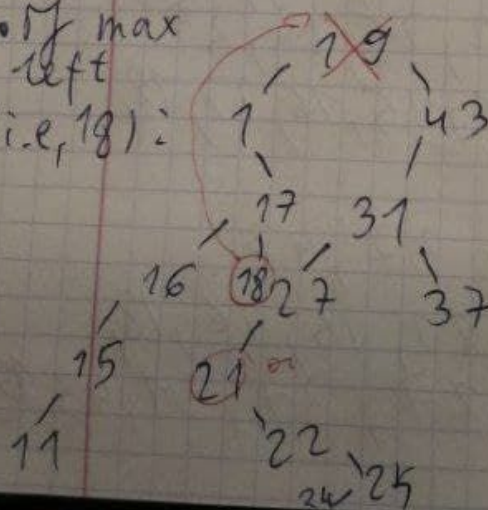 max
19
left
i.e, 18):
1 43
17 31
16 18 27 37
15 21 or
11 22
24 25